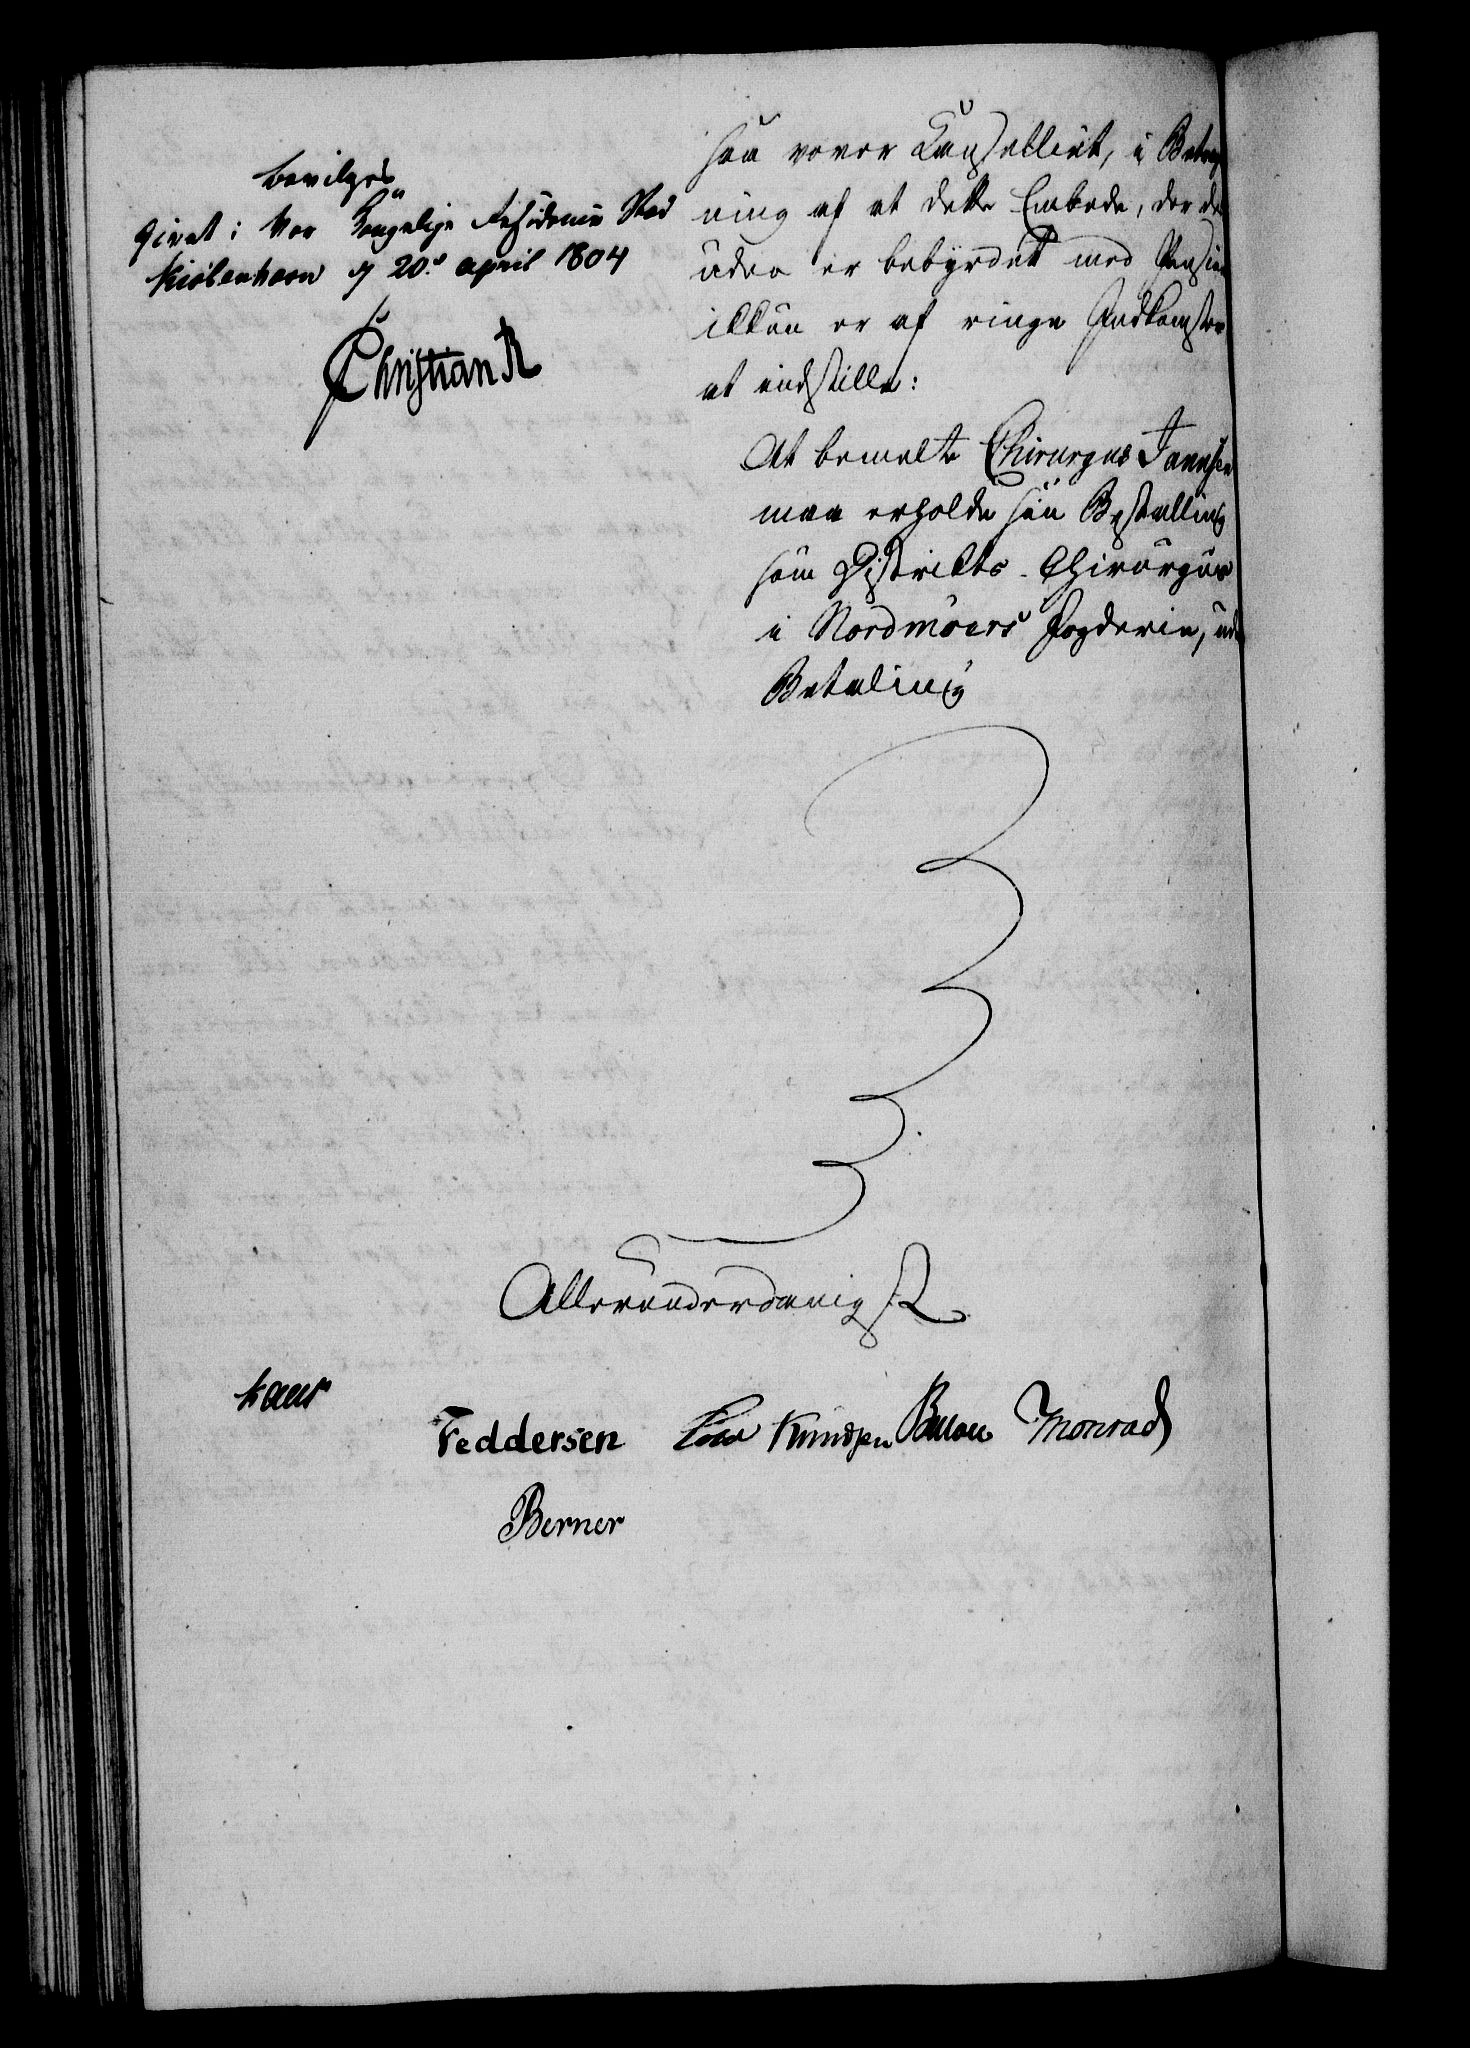 bevilges
Givet i Vor Kongelige Residence Stad
Kiöbenhavn d 20.' april 1804
Christian R
saa vover Cancelliet, i Betragt
ning af at dette Embede, der des
uden er bebyrdet med Pension
ikkun er af ringe Indkomster
at indstille:
At bemelte Chirurgus Jannsen
maa erholde sin Bestalling
som Districkts-Chirurgus
i Nordmöers Fogderie, uden
Betaling
Allerunderdanigst
Kaas
Feddersen Knudsen Bülow Monrad
Berner